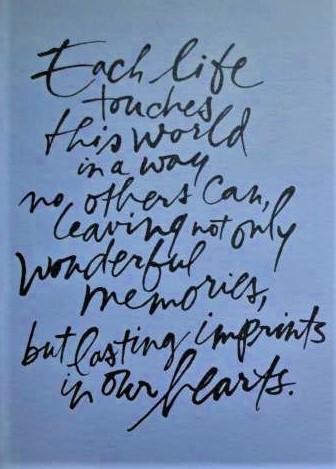 Each life
touches
this world
in a way
no others can,
leaving not only
wonderful
memories,
but lasting imprints
in our hearts.